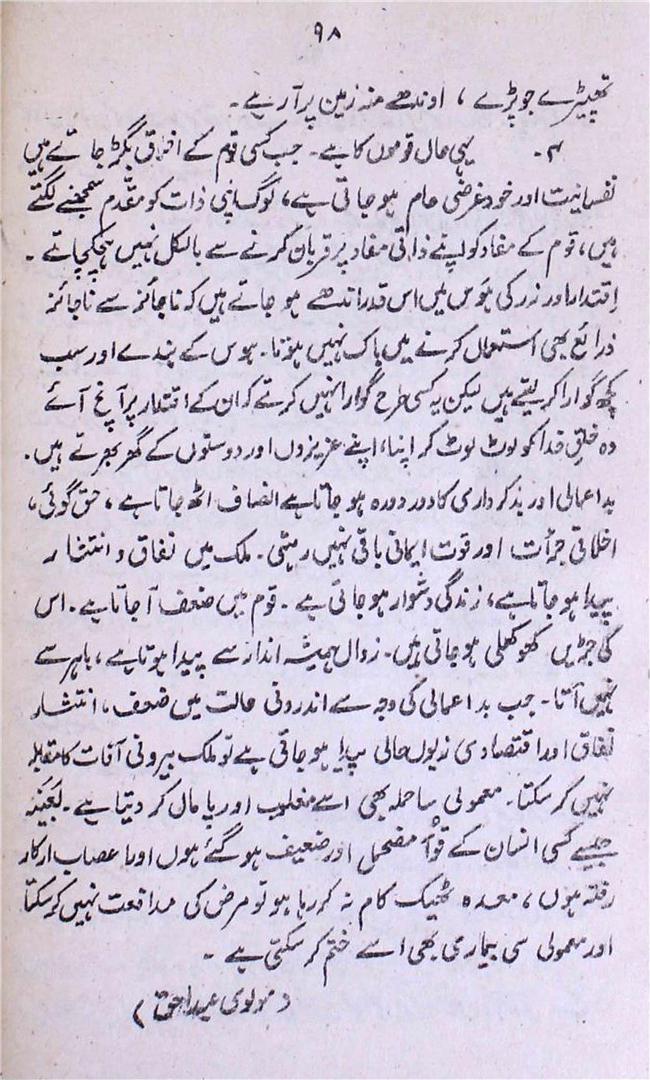 ۹۸
تھپیڑے جو پڑے ، اوندھے منہ زمین پر آرہے۔
۳۔ یہی حال قوموں کا ہے۔ جب کسی قوم کے اخلاق بگڑ جاتے ہیں
نفسانیت اور خود غرضی عام ہو جاتی ہے، لوگ اپنی ذات کو مقدم سمجھنے لگتے
ہیں، قوم کے مفاد کو اپنے ذاتی مفاد پر قربان کرنے سے بالکل نہیں ہچکچاتے ۔
اقتدار اور زر کی ہَوس میں اس قدر اندھے ہو جاتے ہیں کہ ناجائز سے ناجائز
ذرائع بھی استعمال کرنے میں باک نہیں ہوتا۔ ہوس کے بندے اور سب
کچھ گوارا کر لیتے ہیں لیکن یہ کسی طرح گوارا نہیں کرتے کہ ان کے اقتدار پر آنچ آئے
وہ خلقِ خدا کو لوٹ لوٹ کر اپنا، اپنے عزیزوں اور دوستوں کے گھر بھرتے ہیں۔
بداعمالی اور بدکرداری کا دور دورہ ہو جاتا ہے انصاف اٹھ جاتا ہے، حق گوئی،
اخلاقی جرأت اور قوت ایمانی باقی نہیں رہتی۔ ملک میں نفاق و انتشار
پیدا ہو جاتا ہے، زندگی دشوار ہو جاتی ہے ۔ قوم میں ضعف آ جاتا ہے۔ اس
کی جڑیں کھوکھلی ہو جاتی ہیں۔ زوال ہمیشہ اندر سے پیدا ہوتا ہے، باہر سے
نہیں آتا۔ جب بد اعمالی کی وجہ سے اندرونی حالت میں ضعف، انتشار
نفاق اور اقتصادی زبوں حالی پیدا ہو جاتی ہے تو ملک بیرونی آفات کا مقابلہ
نہیں کر سکتا۔ معمولی سا حملہ بھی اسے مغلوب اور پامال کر دیتا ہے۔ بعَینہٖ
جیسے کسی انسان کے قویٰ مضمحل اور ضعیف ہو گئے ہوں اور اعصاب ازکار
رفتہ ہوں، معدہ ٹھیک کام نہ کر رہا ہو تو مرض کی مدافعت نہیں کر سکتا
اور معمولی سی بیماری بھی اسے ختم کر سکتی ہے ۔
(مولوی عبدالحق)